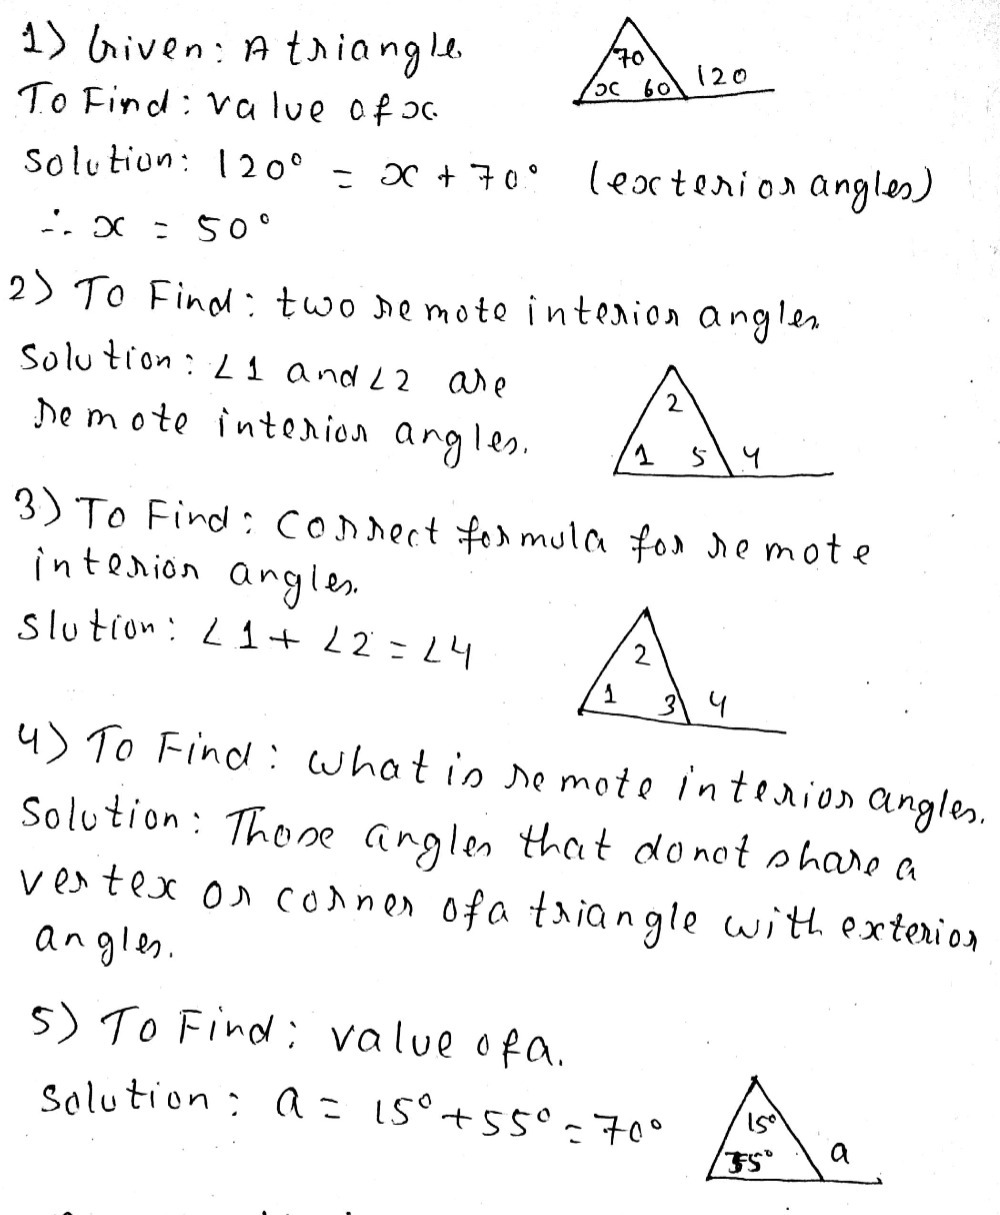 1) Given: A triangle
70
x 60 120
To Find: value of x
Solution: 120° = x + 70° (exterior angles)
∴ x = 50°
2) To Find: two remote interior angles
Solution: ∠1 and ∠2 are
remote interior angles.
2
1 5 4
3) To Find: Correct formula for remote
interior angles.
Slution: ∠1 + ∠2 = ∠4
2
1 3 4
4) To Find: What is remote interior angles.
Solution: Those angles that donot share a
vertex or corner of a triangle with exterior
angles.
5) To Find: value of a.
Solution: a = 15° + 55° = 70°
15°
55° a